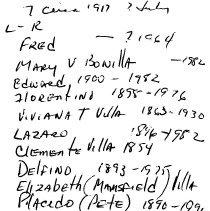 ? Circa 1917 ? July
L - R
FRED — ? 1964
MARY V BONILLA — 1982
Edward 1900 - 1982
Florentino 1898-1976
VIVIANA T VILLA 1863-1930
LAZARO 1896-1982
Clemente Villa 1854
DELFINO 1893-1975
ELIZABETH (MANSFIELD) Villa
PLACEDO (PETE) 1890-199